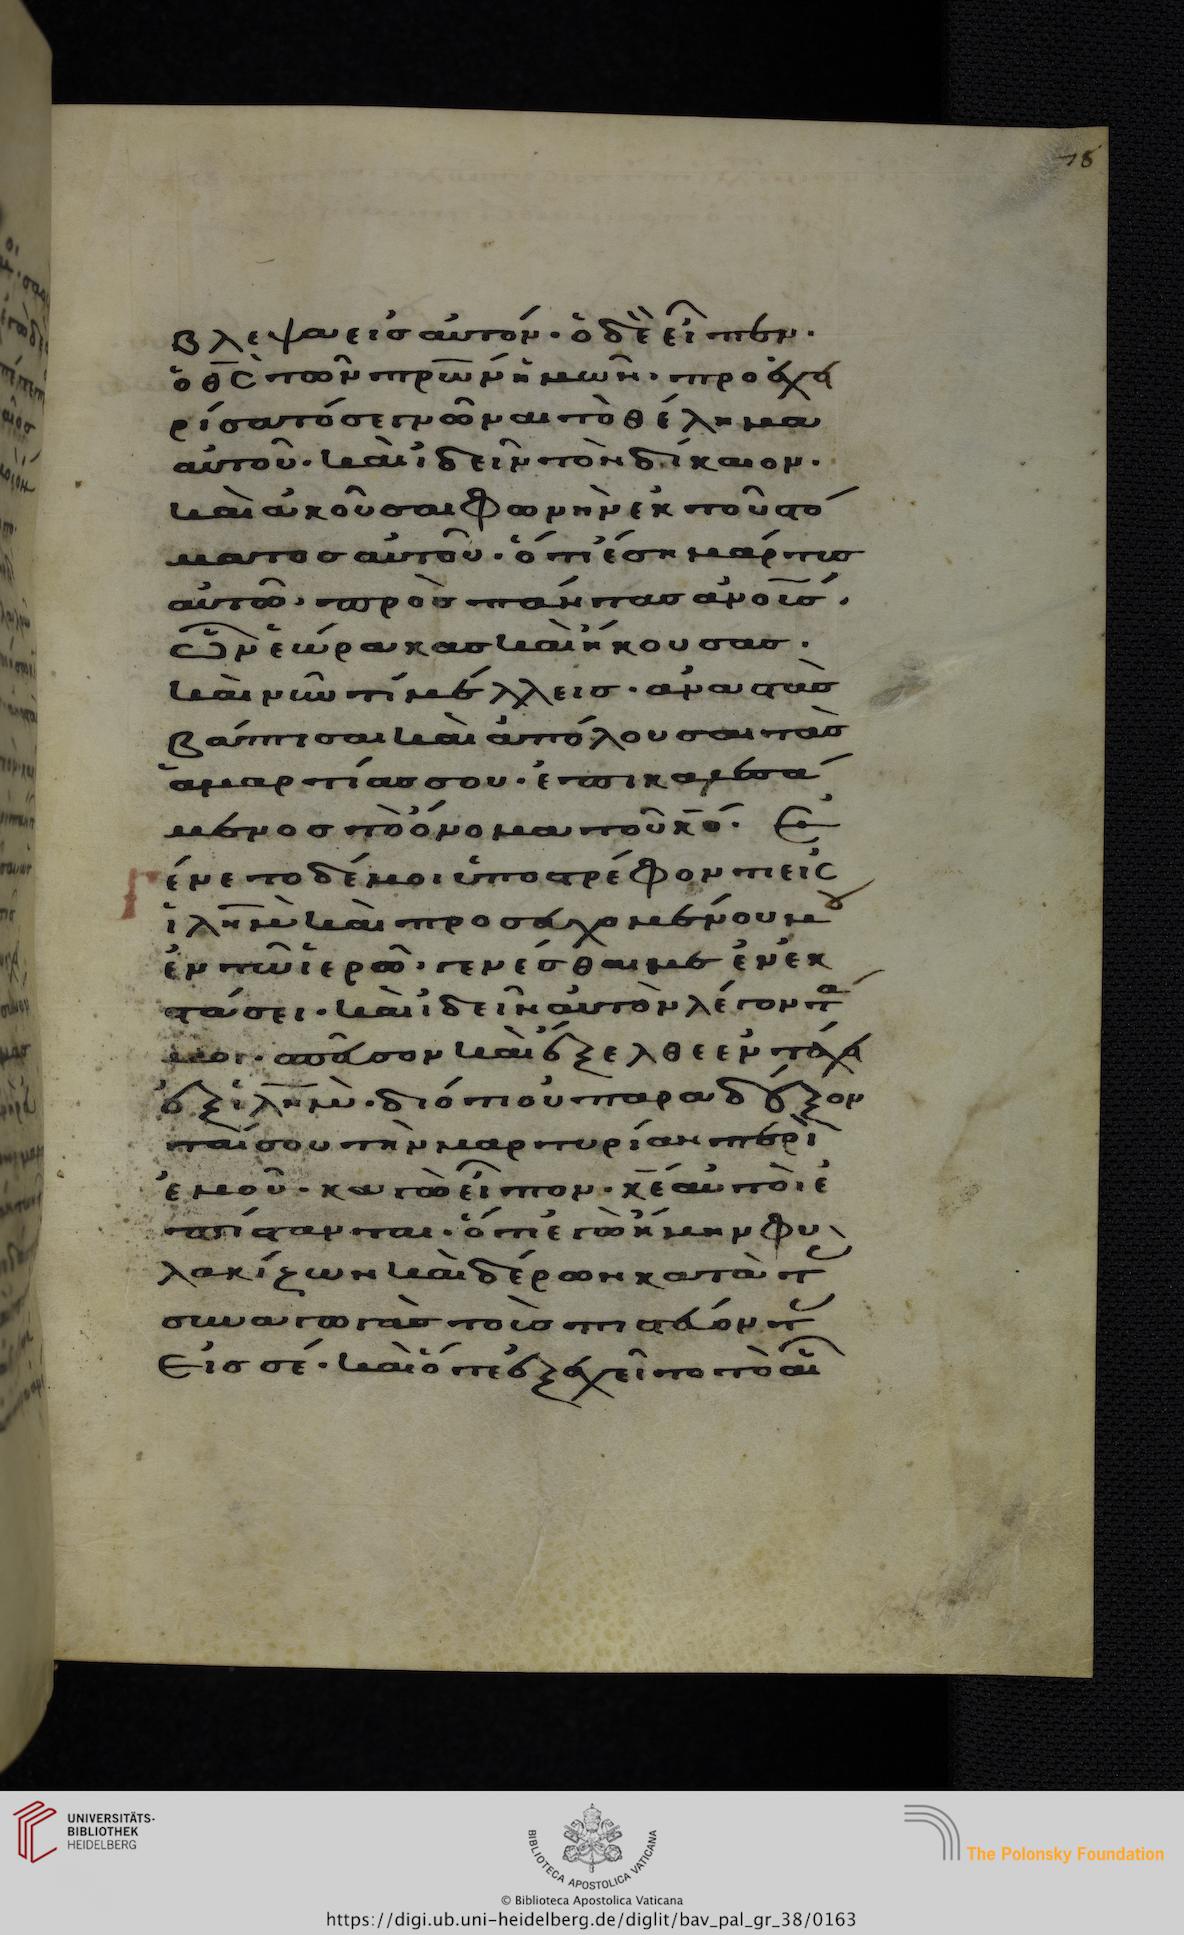 78
βλεψα εἰς αὐτόν· ὁ δὲ εἶπεν·
ὁ θς τῶν πρων ἡμῶν· προεχει
ρίσατό σε γνῶναι τὸ θέλημα
αὐτοῦ· καὶ ἰδεῖν τὸν δίκαιον·
καὶ ἀκοῦσαι φωνὴν ἐκ τοῦ στό
ματος αὐτοῦ· ὅτι ἔση μάρτυς
αὐτῶ· πρὸς πάντας ἀνοις·
ὧν ἑώρακας καὶ ἤκουσας·
καὶ νῦν τί μέλλεις· ἀναστὰς
βάπτισαι καὶ ἀπόλουσαι τὰς
ἁμαρτίας σου· ἐπικαλεσά
μενος τὸ ὄνομα τοῦ κυ· Ἐ
γένετο δέ μοι ὑποστρέψαντι εἰς
ἱλημ καὶ προσευχομένου μου
ἐν τῶ ἱερῶ· γενέσθαι με ἐν ἐκ
στάσει· καὶ ἰδεῖν αὐτὸν λέγοντα
μοι· σπεῦσον καὶ ἔξελθε ἐν τάχει
ἐξ ἱλημ· διότι οὐ παραδέξον
ταί σου τὴν μαρτυρίαν περὶ
ἐμοῦ· κἀγὼ εἶπον· κε αὐτοὶ ἐ
πίστανται· ὅτι ἐγὼ ἤμην φυ
λακίζων καὶ δέρων κατὰ τὰς
συναγωγὰς τοὺς πιστεύοντας
εἰς σέ· καὶ ὅτε ἐξεχεῖτο τὸ αἷ
UNIVERSITÄTS-
BIBLIOTHEK
HEIDELBERG
BIBLIOTECA APOSTOLICA VATICANA
The Polonsky Foundation
© Biblioteca Apostolica Vaticana
https://digi.ub.uni-heidelberg.de/diglit/bav_pal_gr_38/0163